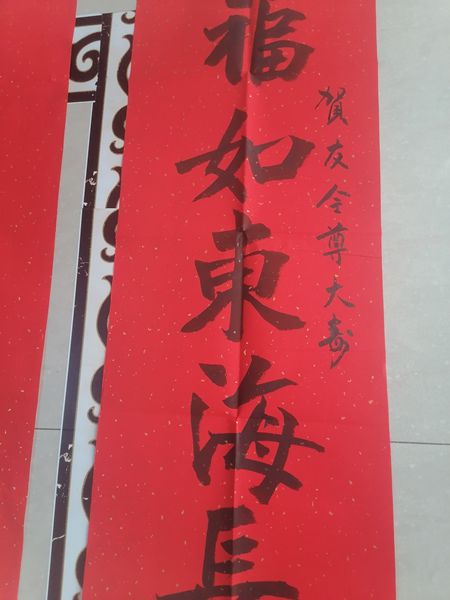 賀友令尊大寿
福如東海長